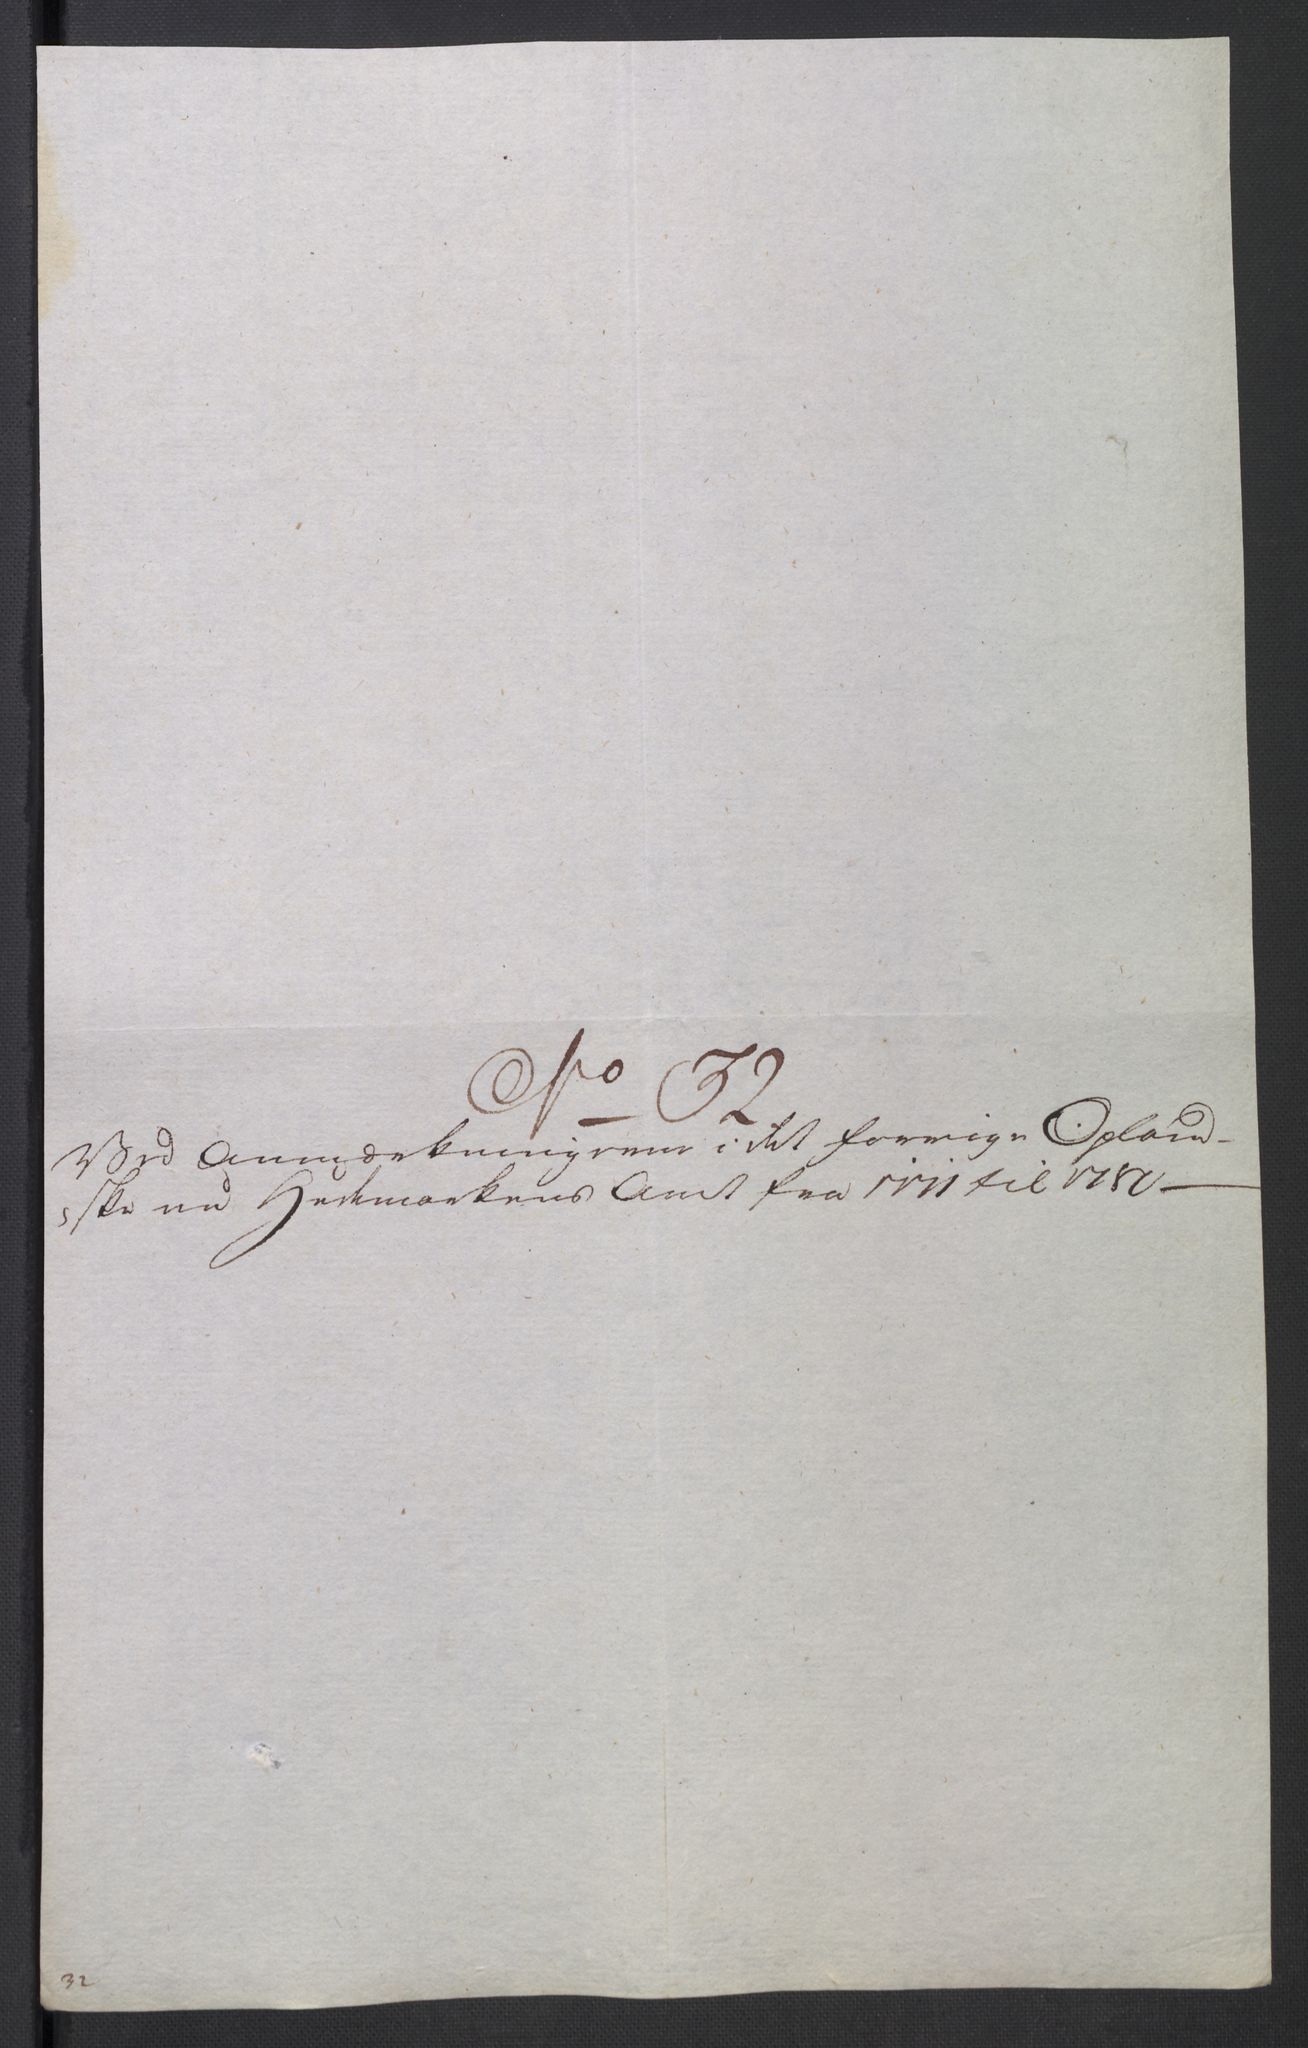 No 32
Ved Anmærkningerne i det forrige Opland-
ske nu Hedemarkens Amt fra til
32